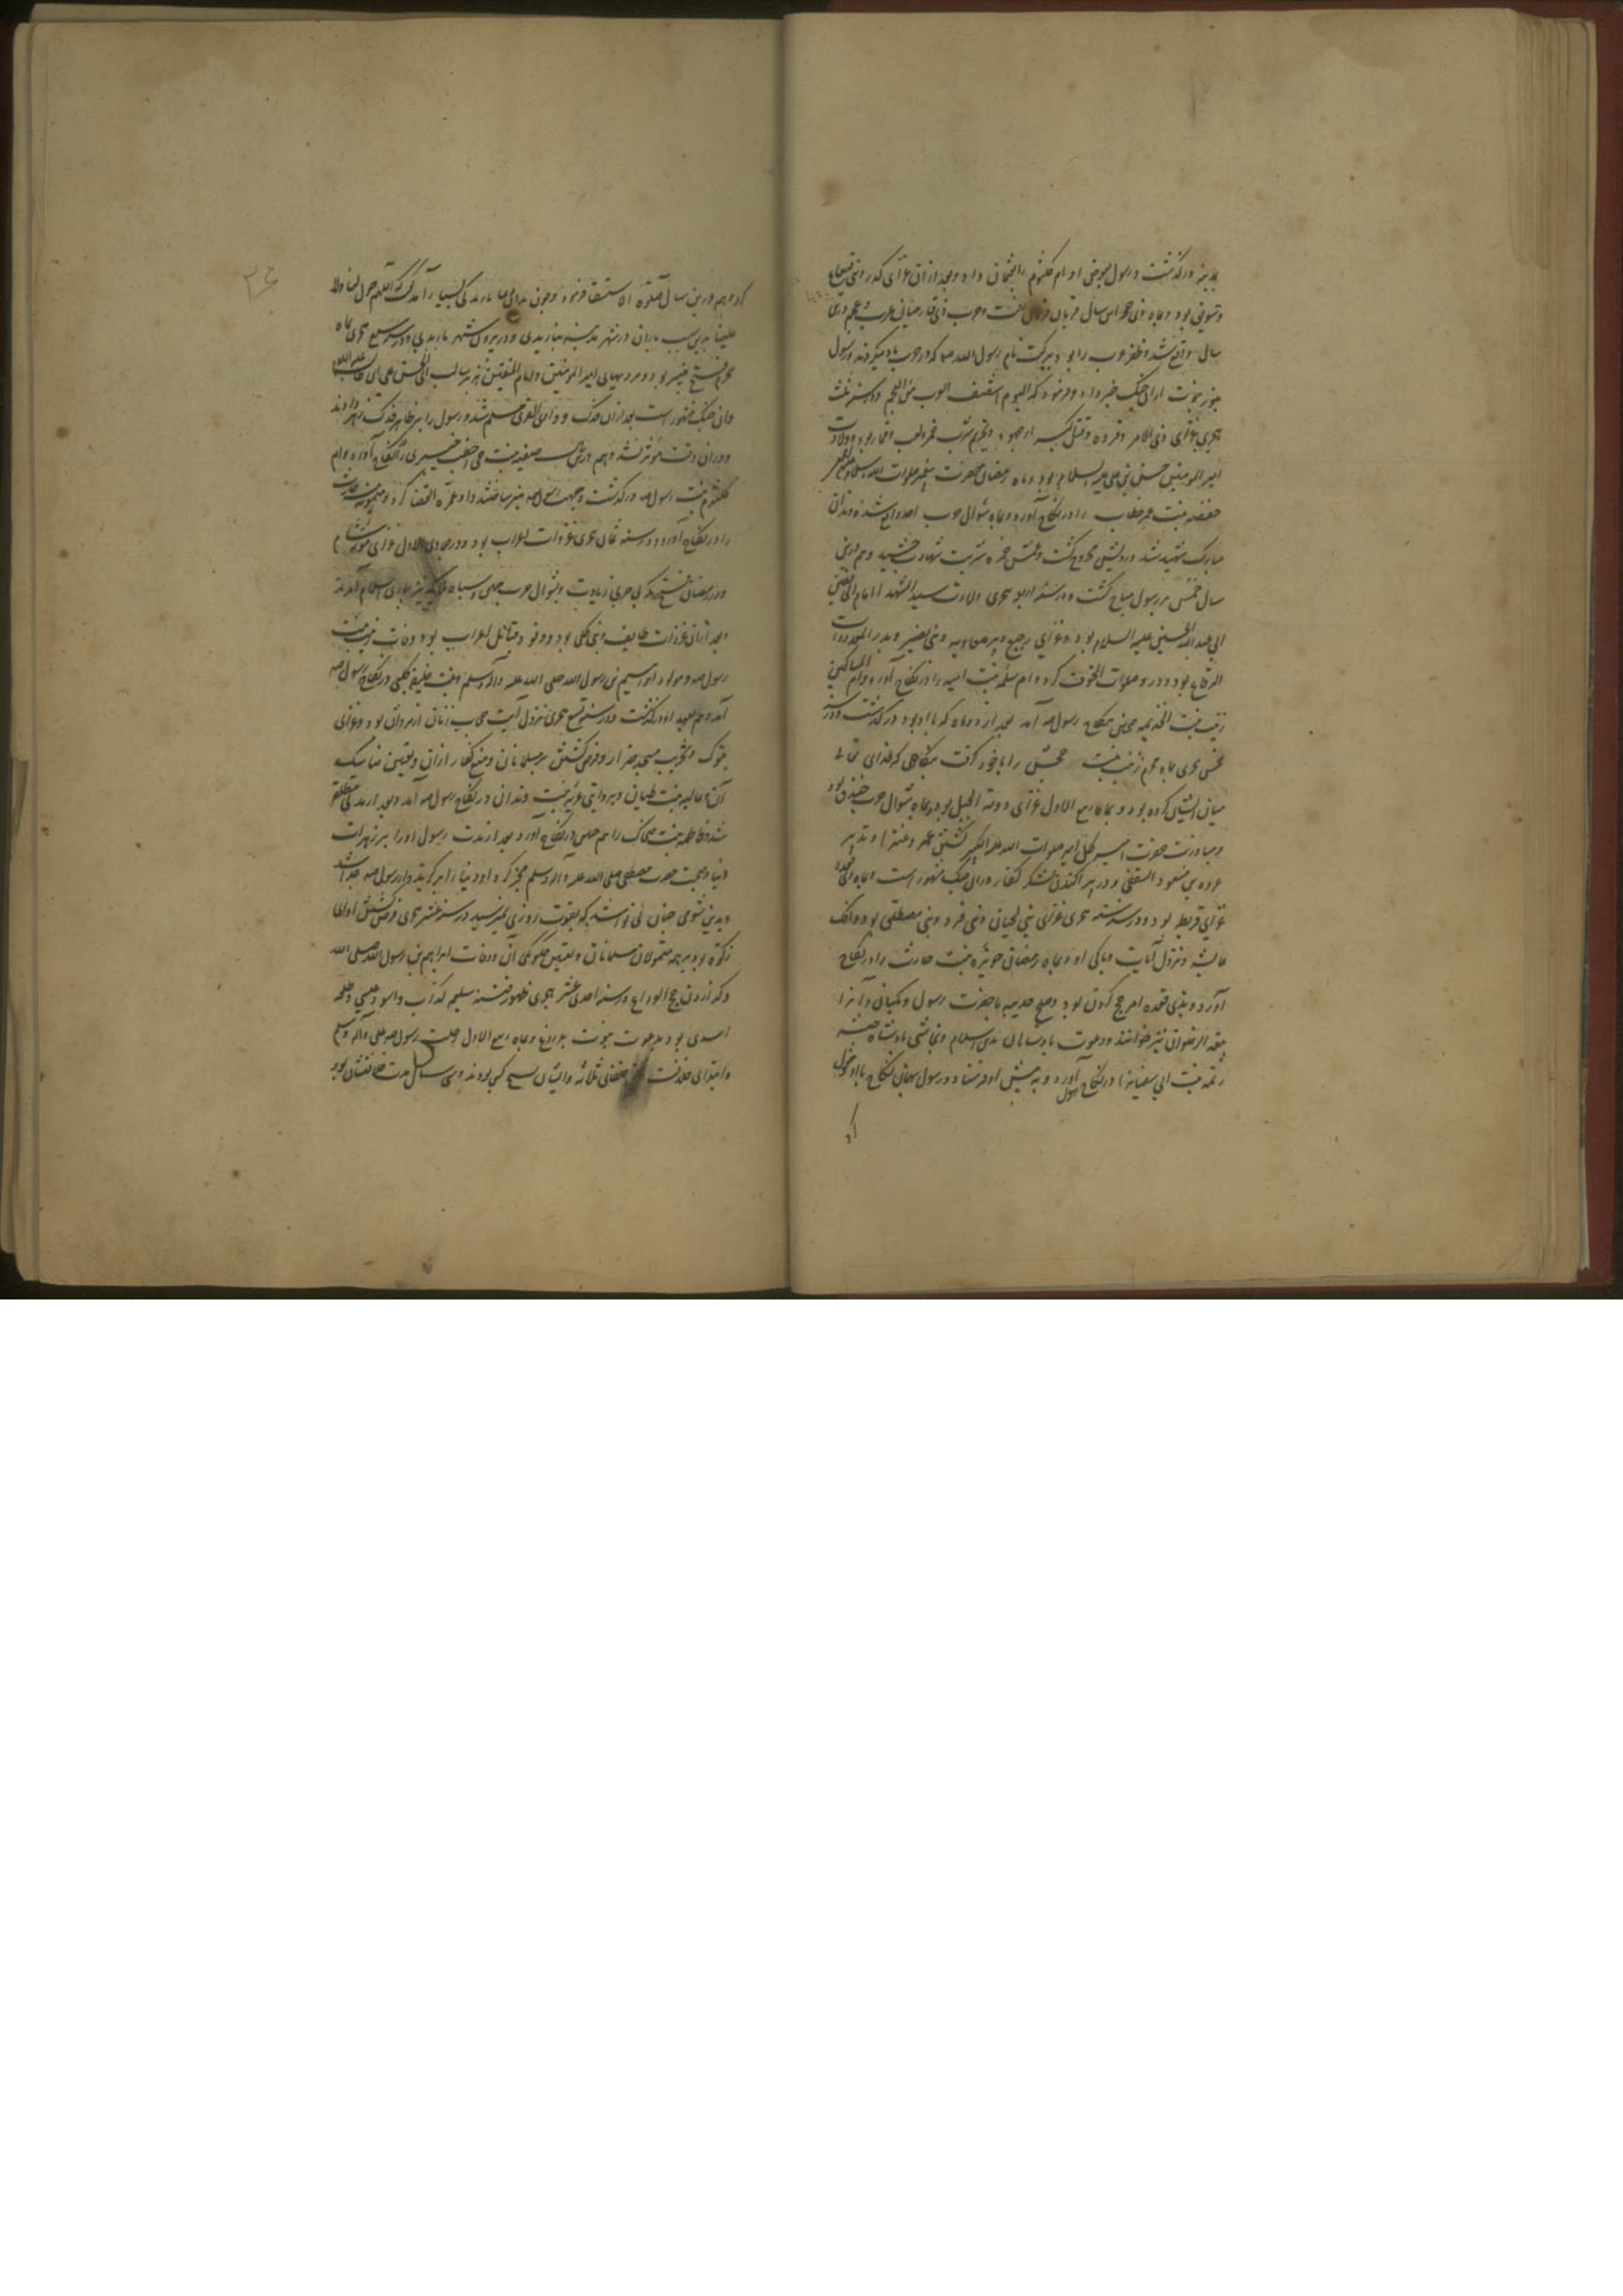 بمدینه درگذشت و رسول بعوض او ام کلثوم را بعثمان داد و بعد از آن غزای کدر و بنی قینقاع
و سویق بود و بماه ذی حجه این سال قربان فرمان رفت و حرب ذی قار میان عرب و عجم درین
سال واقع شد و ظفر عرب را بود ببرکت نام رسول الله که در حرب یاد میکردند و رسول
بنور نبوت از آن جنگ خبر داد و فرمود که الیوم انتصف العرب من العجم و در سنه ثلث
هجری غزای ذی الامر و قرده و قتل کعب از جهود و تحریم شرب خمر و لعب و قمار بود و ولادت
امیر المومنین حسن بن علی علیه السلام بود و بماه رمضان حضرت پیغمبر صلوات الله
حفصه بنت عمر خطاب را در نکاح آورد و بماه شوال حرب احد واقع شد و دندان
مبارک شهید شد و رویش مجروح گشت و عمش حمزه شربت شهادت چشید و هم درین
سال خمس بر رسول مباح گشت و در سنه اربع هجری ولادت سید الشهدا امام
ابی عبد الله الحسین علیه السلام بود و غزای رجیع و بیر معاویه و بنی نضیر و بدر الموعد و ذات
الرقاع بود و درو صلوات الخوف کرد و ام سلمه بنت امیه را در نکاح آورد و ام المساکین
زینب بنت الخزیمه هم در نکاح رسول آمد بعد از دو ماه که با او بود درگذشت و در سنه
خمس هجری بماه محرم زینب بنت جحش را با خود گرفت بنکاحی که خدای تعالی
میان ایشان کرده بود و بماه ربیع الاول غزای دومة الجندل بود و بماه شوال حرب خندق بود
و مبارزت حضرت امیر کل امیر صلوات الله علیه و کشتن عمر و عنتر او تدبیر
عروه بن مسعود الثقفی و در پراکندن لشکر کفار در آن جنگ مشهور است و بماه ذی قعده
غزای قریظه بود و در سنه سته هجری غزای بنی لحیان و ذی قرد و بنی مصطلق بود و افک
عایشه و نزول آیات و پاکی او و بماه رمضان جویریه بنت حارث را در نکاح
آورد و بذی قعده امر حج کردن بود و صلح حدیبیه با حضرت رسول و مکیان و آنرا
بیعة الرضوان نیز خوانند و دعوت پادشاهان بدین اسلام و نجاشی پادشاه حبشه
رمله بنت ابی سفیان را در نکاح رسول آورد و به پیش او فرستاد و رسول نکاح با او
کرد و هم درین سال صلوه الاستسقا فرمود و چون بدعا بارندگی بسیار آمد گفت اللهم حوالینا و لا
علینا بدین سبب باران در شهر مدینه نباریدی و در بیرون شهر باریدی و در سنه سبع هجری بماه
محرم فتح خیبر بود و مردیهای امیر المومنین و امام المتقین اسد الله الغالب ابی الحسن علی بن ابی طالب علیه السلام
در آن جنگ مشهور است بعد از آن فدک و وادی القری مسلم شد و رسول را بخیبر زهر دادند
و در آن وقت موثر نشد و هم درین سال صفیه بنت حیی اخطب خیبری را در نکاح آورد و ام
کلثوم بنت رسول درگذشت و جهت رسول منبر ساختند و او عمره القضا کرد و میمونه بنت حارث
را در نکاح آورد و در سنه ثمان هجری غزوات اعراب بود و در جمادی الاول غزای موته شام
و در رمضان فتح مکه بی حرب زیادت و بشوال حرب حنین و سپاه ملایکه نیز بیاری اسلام آمدند
و بعد از آن غزوات طایف و بنی کلب بود و وفود قبایل اعراب بود و وفات زینب بنت
رسول و مولود ابراهیم بن رسول الله صلی الله علیه و آله و سلم و بنت خلیفه کلبی در نکاح رسول
آمد و هم بعهد او درگذشت و در سنه تسع هجری نزول آیت حجاب زنان از مردان بود و غزای
تبوک و تخریب مسجد ضرار و فرض گشتن حج بر مسلمانان و منع کفار از آن و تعیین مناسک
آن و عالیه بنت ظبیان و بروایتی عزیه بنت دودان در نکاح رسول آمد و بعد از مدتی مطلقه
شد و فاطمه بنت ضحاک را هم در نکاح آورد و بعد از مدت رسول او را بر زهرات
دنیا و محبت حضرت مصطفی صلی الله علیه و آله و سلم مخیر کرد او دنیا را برگزید و از رسول جدا شد
و بدین شومی چنان بی نوا شد که بقوت روزی نمیرسید و در سنه عشر هجری فرض گشتن ادای
زکوه بود بر همه متمولان مسلمانان و تعیین چگونگی آن و وفات ابراهیم بن رسول الله صلی الله
و گزاردن حج الوداع و در سنه احدی عشر هجری ظهور فتنه مسیلمه کذاب و اسود عنسی و طلحه
اسدی بود بدعوت نبوت بدروغ و بماه ربیع الاول رحلت رسول صلی و آله و سلم
و ابتدای خلافت خلفای ثلاثه و ایشان سه کس بودند و سی سال مدت خلافتشان بود